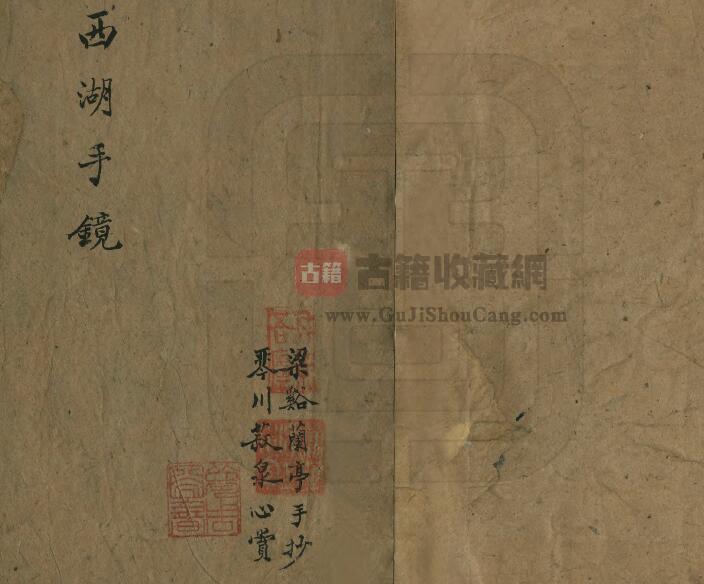 西湖手鏡
梁谿蘭亭手抄
琴川菽泉心賞
古籍
古籍收藏網
www.GuJiShouCang.com